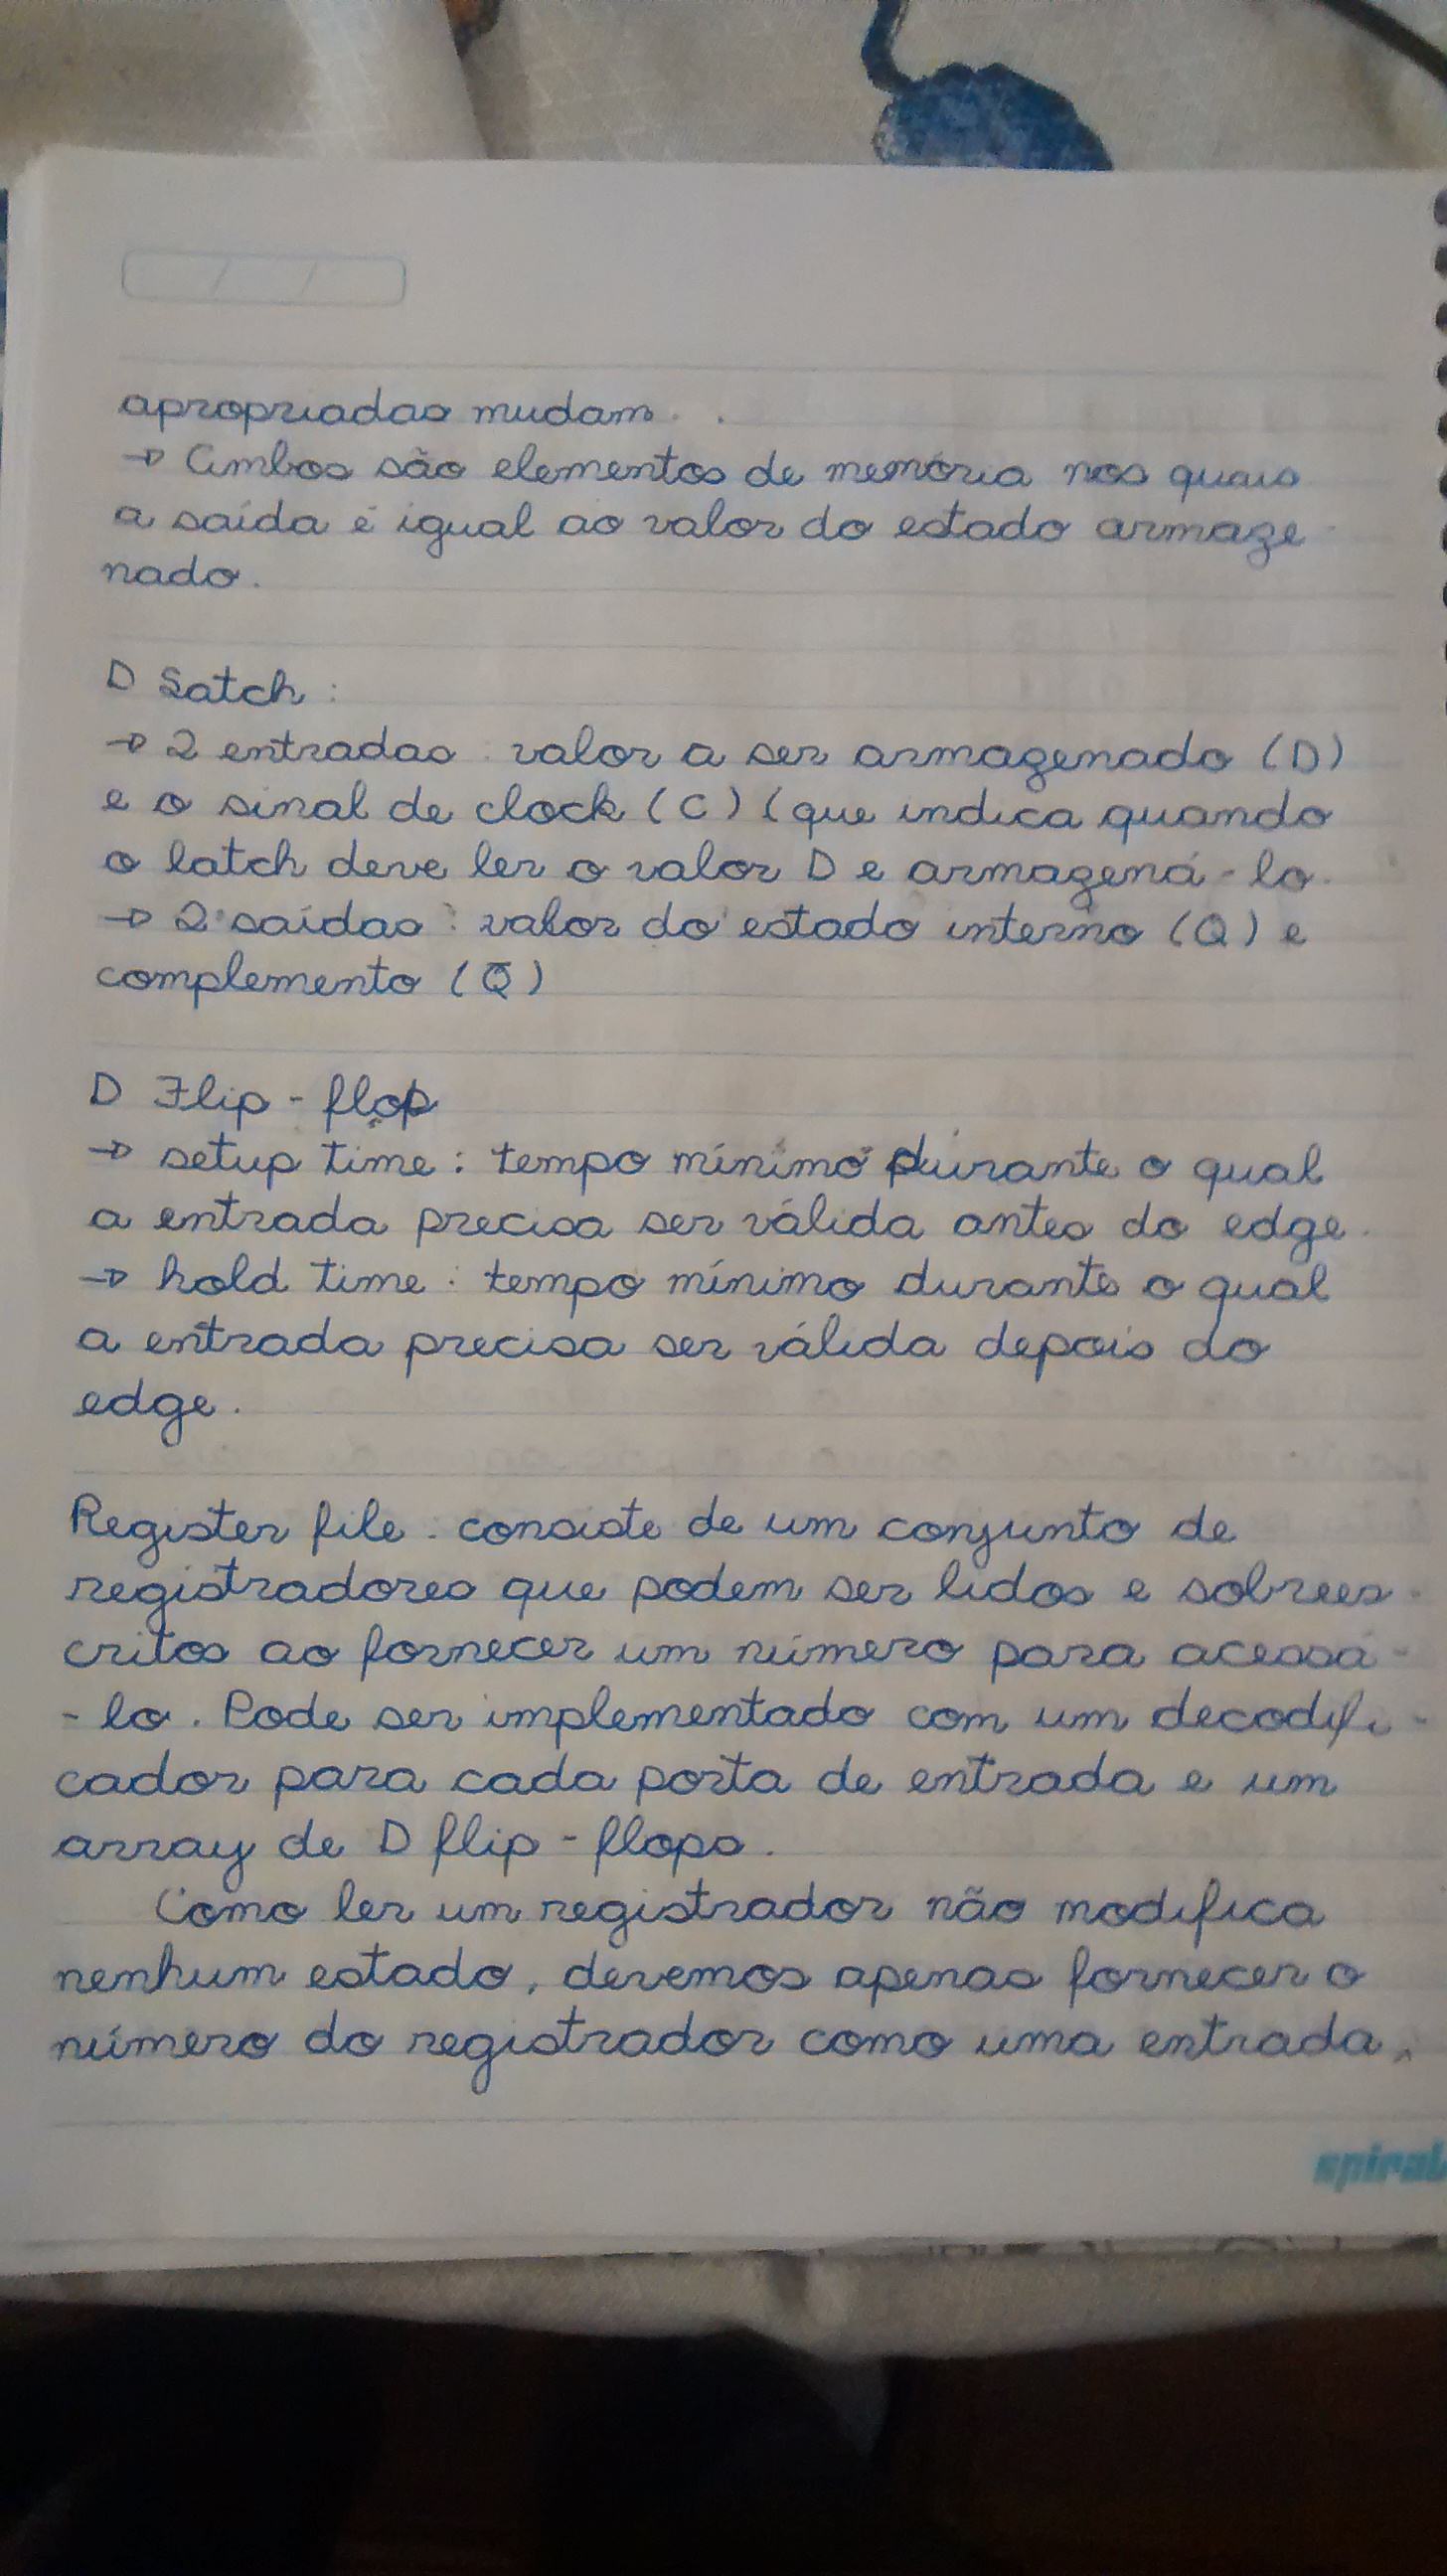 apropriadas mudam.
→ Ambos são elementos de memória nos quais
a saída é igual ao valor do estado armaze
nado.
D Latch:
→ 2 entradas: valor a ser armazenado (D)
e o sinal de clock (C) (que indica quando
o latch deve ler o valor D e armazená-lo.
→ 2 saídas: valor do estado interno (Q) e
complemento (Q̅)
D Flip-flop
→ setup time: tempo mínimo durante o qual
a entrada precisa ser válida antes do edge.
→ hold time: tempo mínimo durante o qual
a entrada precisa ser válida depois do
edge.
Register file: consiste de um conjunto de
registradores que podem ser lidos e sobrees-
critos ao fornecer um número para acessá-
-lo. Pode ser implementado com um decodifi-
cador para cada porta de entrada e um
array de D flip-flops.
Como ler um registrador não modifica
nenhum estado, devemos apenas fornecer o
número do registrador como uma entrada,
spiral